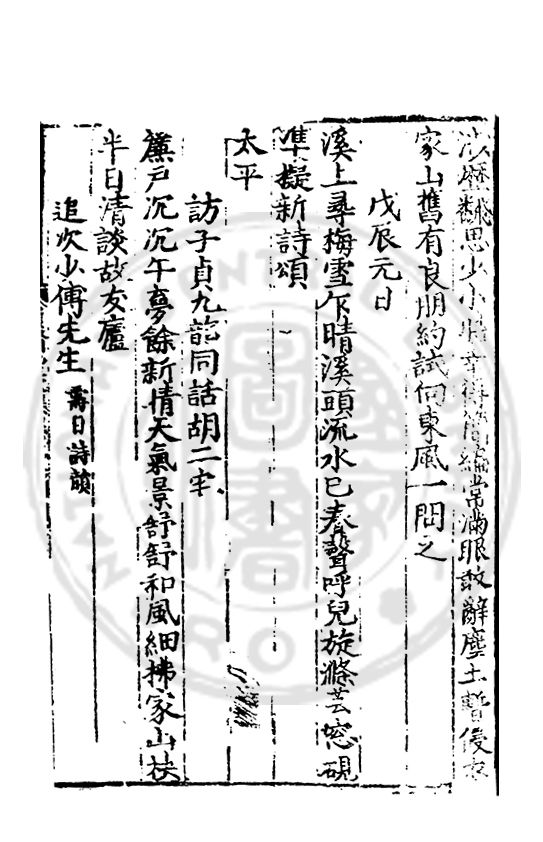 思少小 常滿眼敢辭塵土暫侵衣
家山舊有良朋約試向東風一問之
戊辰元日
溪上尋梅雪乍晴溪頭流水已春聲呼兒旋滌芸窓硯
準擬新詩頌
太平
訪子貞九韶同話胡二宅
簾戶沉沉午夢餘新晴天氣景舒舒和風細拂家山袂
半日清談故友廬
追次少傅先生 日詩韻